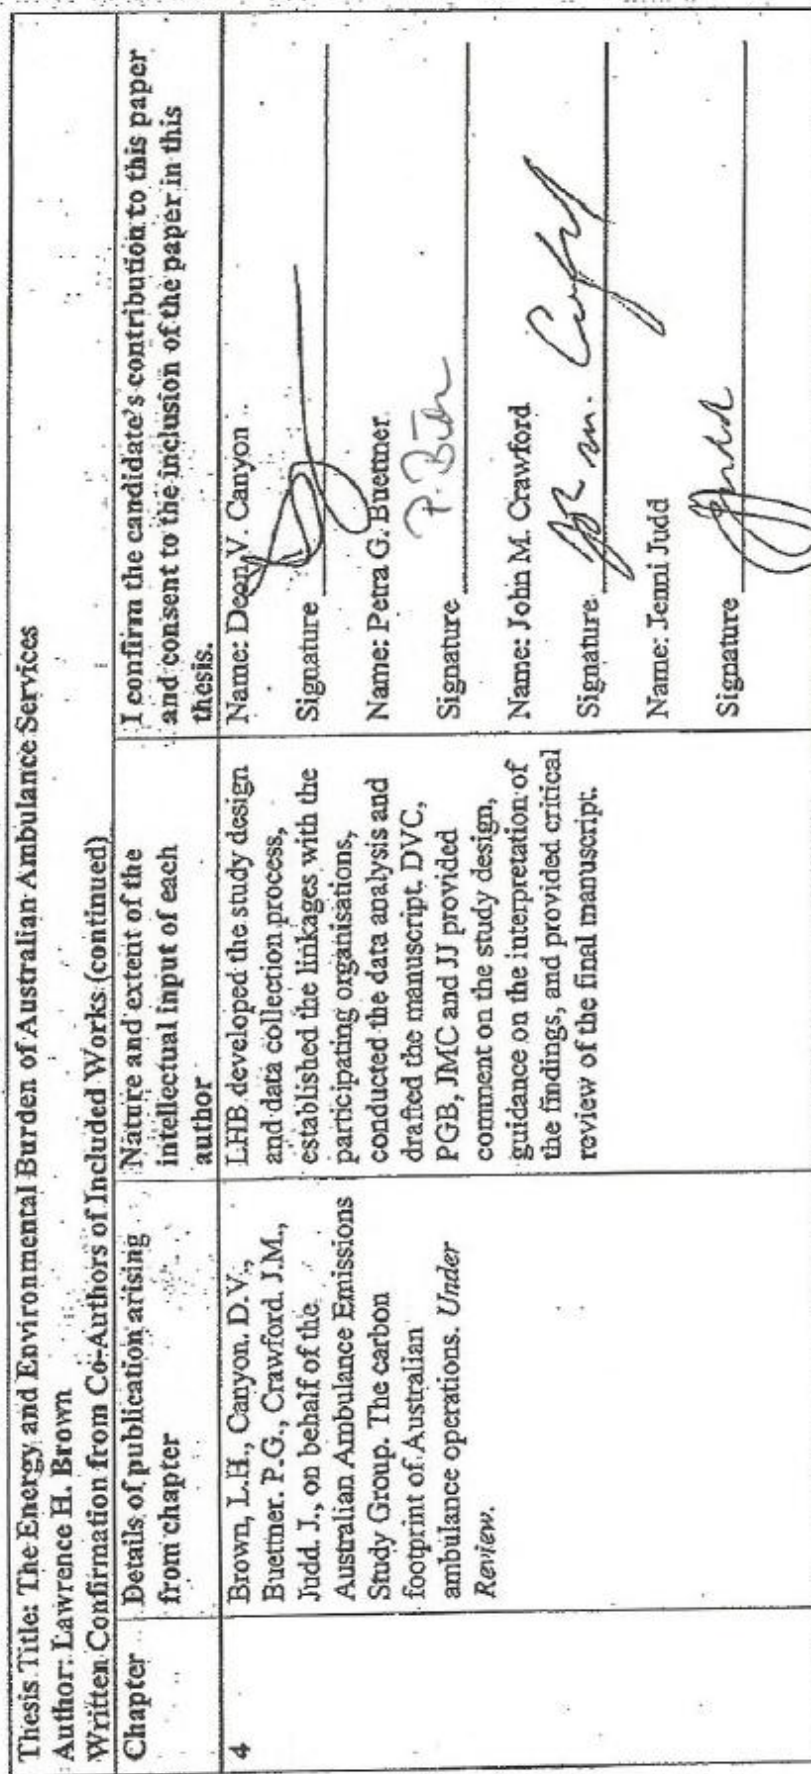 Thesis Title: The Energy and Environmental Burden of Australian Ambulance Services
Author: Lawrence H. Brown
Written Confirmation from Co-Authors of Included Works (continued)
Chapter
Details of publication arising
from chapter
Nature and extent of the
intellectual input of each
author
I confirm the candidate's contribution to this paper
and consent to the inclusion of the paper in this
thesis.
4
Brown, L.H., Canyon. D.V.,
Buettner. P.G., Crawford. J.M.,
Judd. J., on behalf of the
Australian Ambulance Emissions
Study Group. The carbon
footprint of Australian
ambulance operations. Under
Review.
LHB developed the study design
and data collection process,
established the linkages with the
participating organisations,
conducted the data analysis and
drafted the manuscript. DVC,
PGB, JMC and JJ provided
comment on the study design,
guidance on the interpretation of
the findings, and provided critical
review of the final manuscript.
Name: Deon V. Canyon
Signature
Name: Petra G. Buettner
Signature
Name: John M. Crawford
Signature
Name: Jenni Judd
Signature